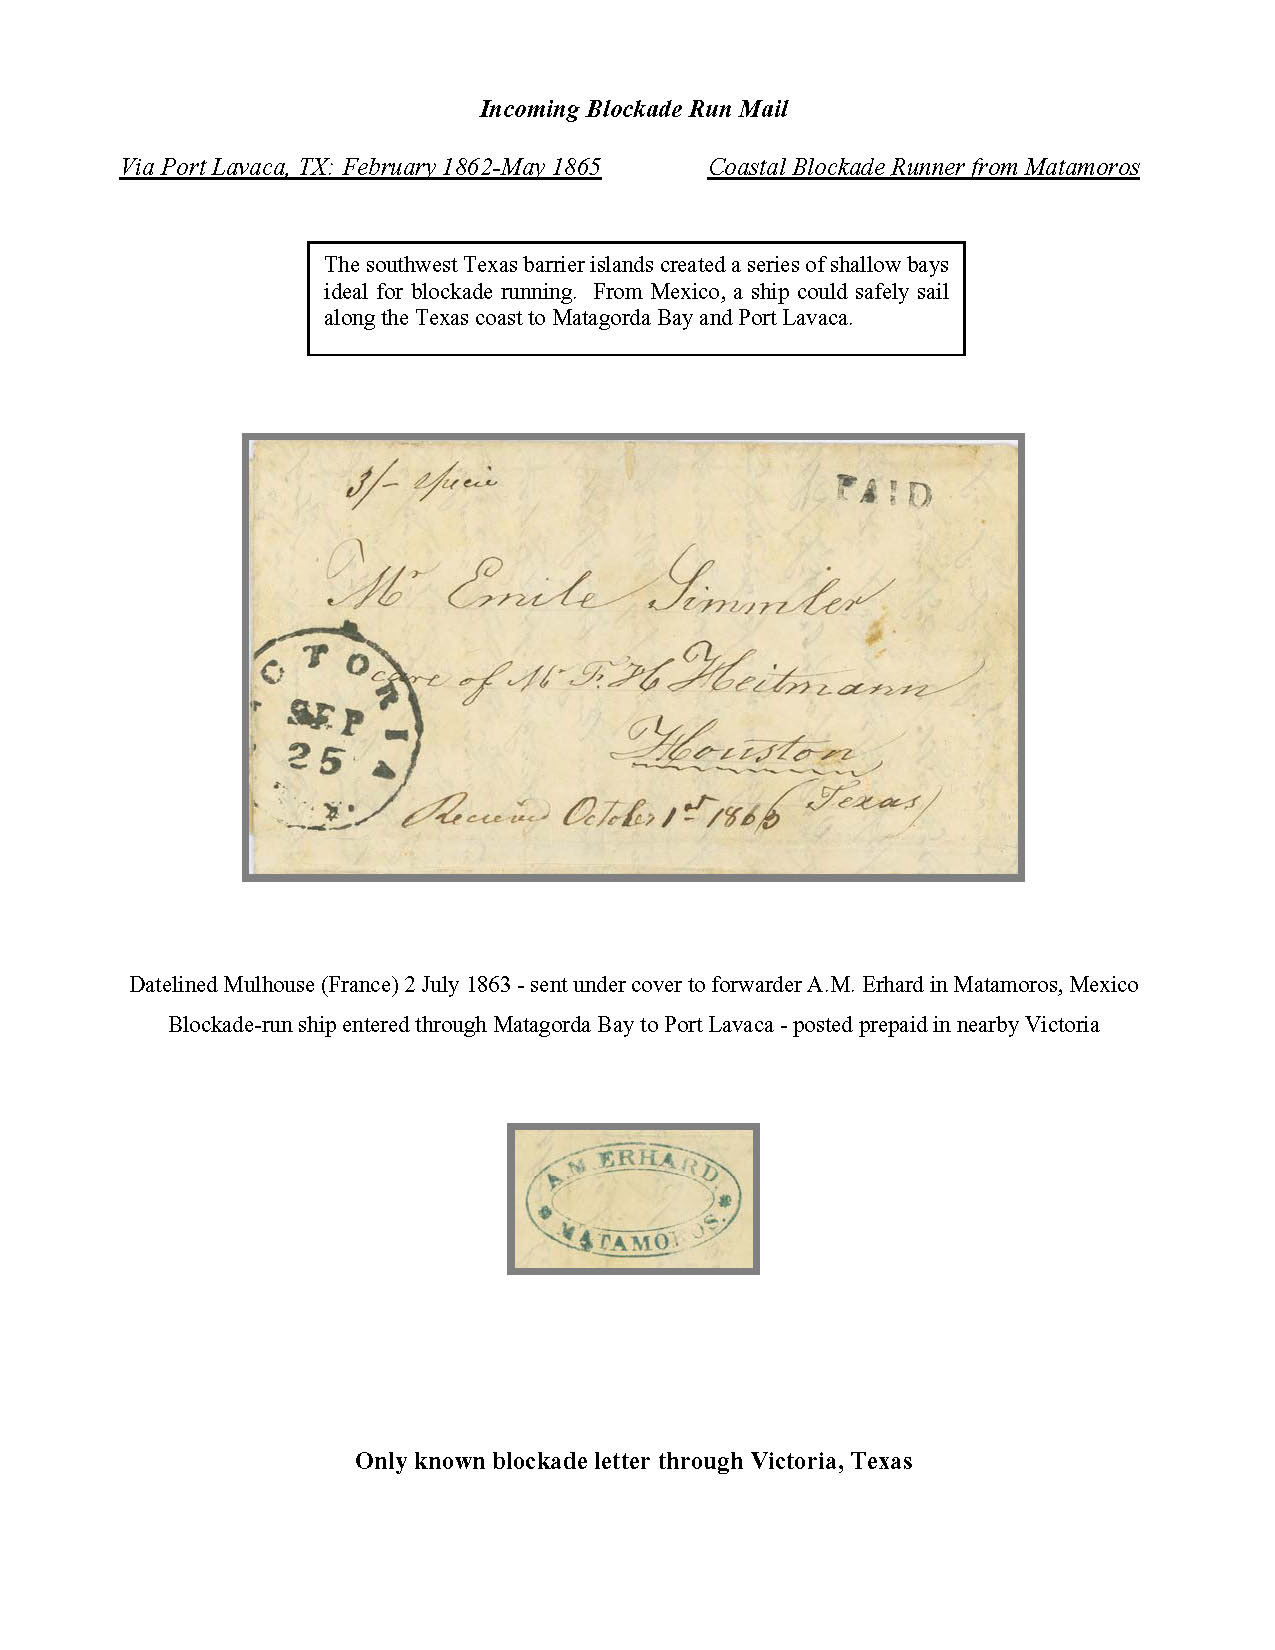 Incoming Blockade Run Mail
Via Port Lavaca, TX: February 1862-May 1865
Coastal Blockade Runner from Matamoros
The southwest Texas barrier islands created a series of shallow bays
ideal for blockade running. From Mexico, a ship could safely sail
along the Texas coast to Matagorda Bay and Port Lavaca.
3/- specie
PAID
Mr Emile Simmler
care of Mr F. H Heitmann
Houston
(Texas)
CTORIA
SEP
25
Received October 1st 1863
Datelined Mulhouse (France) 2 July 1863 - sent under cover to forwarder A.M. Erhard in Matamoros, Mexico
Blockade-run ship entered through Matagorda Bay to Port Lavaca - posted prepaid in nearby Victoria
A.M. ERHARD.
* MATAMOROS. *
Only known blockade letter through Victoria, Texas